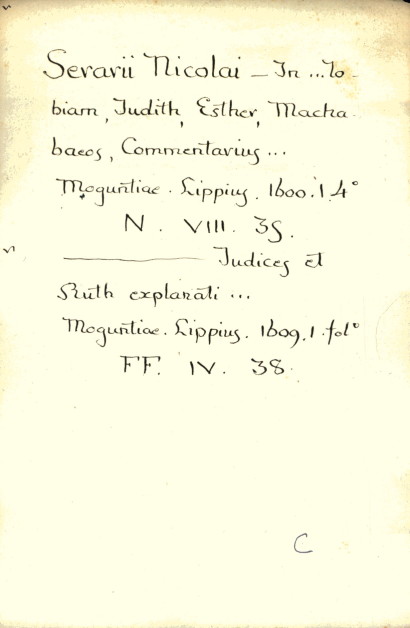 Serarii Nicolai — In ... To-
biam, Judith, Esther, Macha-
baeos, Commentarius ...
Moguntiae. Lippius. 1600. 1. 4°
N. VIII. 35.
——— Judices et
Ruth explanati ...
Moguntiae. Lippius. 1609. 1. fol°
FF. IV. 38.
C